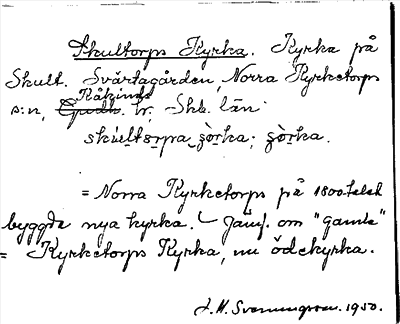 Skultorps Kyrka. Kyrka på
Skult. Svärtagården, Norra Kyrketorps
s:n, Kåkinds Gudh. hr. Skb. län
skúltɔrpa ço̱rka; ço̱rka.
= Norra Kyrketorps på 1800-talet
byggda nya kyrka. – Jämf. om "gamla"
= Kyrketorps Kyrka, nu ödekyrka.
J. H. Svenungson. 1950.